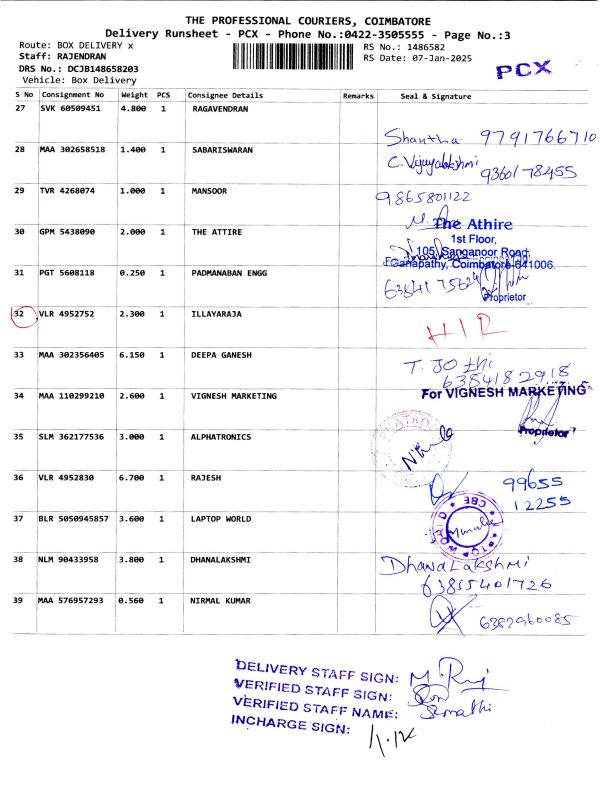 THE PROFESSIONAL COURIERS, COIMBATORE
Delivery Runsheet - PCX - Phone No.:0422-3505555 - Page No.:3
Route: BOX DELIVERY x
RS No.: 1486582
Staff: RAJENDRAN
RS Date: 07-Jan-2025
DRS No.: DCJB148658203
Vehicle: Box Delivery
PCX
S No Consignment No Weight PCS Consignee Details Remarks Seal & Signature
27 SVK 60509451 4.800 1 RAGAVENDRAN
Shantha 9791766710
28 MAA 302658518 1.400 1 SABARISWARAN
C. Vijayalakshmi
9360178455
29 TVR 4268074 1.000 1 MANSOOR
9865801122
30 GPM 5438090 2.000 1 THE ATTIRE
The Athire
1st Floor,
105, Sanganoor Road,
Ganapathy, Coimbatore-641006.
31 PGT 5608118 0.250 1 PADMANABAN ENGG
Proprietor
32 VLR 4952752 2.300 1 ILLAYARAJA
33 MAA 302356405 6.150 1 DEEPA GANESH
T. Jothi
6384182918
34 MAA 110299210 2.600 1 VIGNESH MARKETING
For VIGNESH MARKETING
Proprietor
35 SLM 362177536 3.000 1 ALPHATRONICS
36 VLR 4952830 6.700 1 RAJESH
99655
12255
37 BLR 5050945857 3.600 1 LAPTOP WORLD
CBE
38 NLM 90433958 3.800 1 DHANALAKSHMI
DhanaLakshmi
63855401726
39 MAA 576957293 0.560 1 NIRMAL KUMAR
6382960085
DELIVERY STAFF SIGN:
VERIFIED STAFF SIGN:
VERIFIED STAFF NAME:
INCHARGE SIGN: